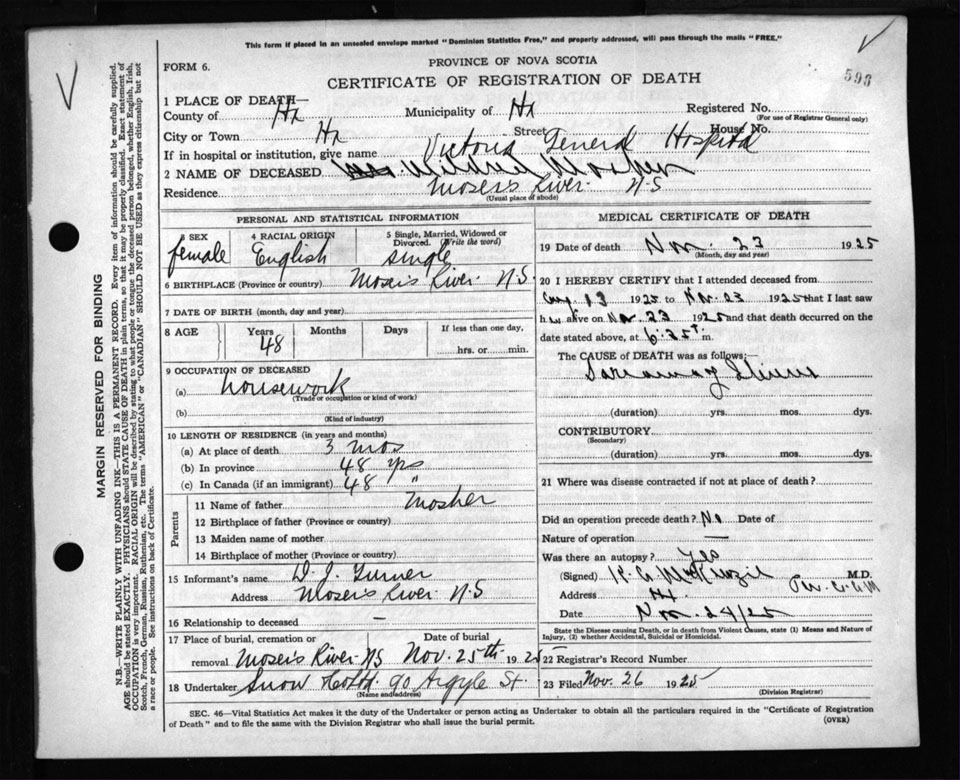 This form if placed in an unsealed envelope marked "Dominion Statistics Free," and properly addressed, will pass through the mails "FREE."
FORM 6.
PROVINCE OF NOVA SCOTIA
593
CERTIFICATE OF REGISTRATION OF DEATH
MARGIN RESERVED FOR BINDING
N.B.—WRITE PLAINLY WITH UNFADING INK—THIS IS A PERMANENT RECORD. Every item of information should be carefully supplied.
AGE should be stated EXACTLY. PHYSICIANS should STATE CAUSE OF DEATH in plain terms, so that it may be properly classified. Exact statement of
OCCUPATION is very important. RACIAL ORIGIN will be described by stating to what people or tongue the deceased person belonged, whether English, Irish,
Scotch, French, German, Russian, Ruthenian, etc. The terms "AMERICAN" or "CANADIAN" SHOULD NOT BE USED as they express citizenship but not
a race or people. See instructions on back of Certificate.
1 PLACE OF DEATH—
County of Hx Municipality of Hx Registered No.
(For use of Registrar General only)
City or Town Hx Street House No.
If in hospital or institution, give name Victoria General Hospital
2 NAME OF DECEASED Mildred Mosher
Residence Moser's River N.S
(Usual place of abode)
PERSONAL AND STATISTICAL INFORMATION
3 SEX female
4 RACIAL ORIGIN English
5 Single, Married, Widowed or Divorced. (Write the word) single
6 BIRTHPLACE (Province or country) Moser's River N.S.
7 DATE OF BIRTH (month, day and year)
8 AGE Years 48 Months Days If less than one day, hrs. or min.
9 OCCUPATION OF DECEASED
(a) housework
(Trade or occupation or kind of work)
(b)
(Kind of industry)
10 LENGTH OF RESIDENCE (in years and months)
(a) At place of death 3 mos
(b) In province 48 yrs
(c) In Canada (if an immigrant) 48 "
Parents
11 Name of father Mosher
12 Birthplace of father (Province or country)
13 Maiden name of mother
14 Birthplace of mother (Province or country)
15 Informant's name D. J. Turner
Address Moser's River N.S
16 Relationship to deceased –
17 Place of burial, cremation or removal Moser's River NS Date of burial Nov. 25th 1925
18 Undertaker Snow 90 Argyle St.
(Name and address)
MEDICAL CERTIFICATE OF DEATH
19 Date of death Nov. 23 1925
(Month, day and year)
20 I HEREBY CERTIFY that I attended deceased from
Aug 13 1925 to Nov. 23 1925 that I last saw
her alive on Nov. 23 1925 and that death occurred on
date stated above, at 6.35 m.
The CAUSE of DEATH was as follows:—
Sarcoma of
(duration) yrs. mos. dys.
CONTRIBUTORY
(Secondary)
(duration) yrs. mos. dys.
21 Where was disease contracted if not at place of death?
Did an operation precede death? No Date of
Nature of operation —
Was there an autopsy? Yes
(Signed) K. A. McKenzie M.D.
Address Hx. Per.
Date Nov. 24/25
State the Disease causing Death, or in death from Violent Causes, state (1) Means and Nature of
Injury, (2) whether Accidental, Suicidal or Homicidal.
22 Registrar's Record Number
23 Filed Nov. 26 1925
(Division Registrar)
SEC. 46—Vital Statistics Act makes it the duty of the Undertaker or person acting as Undertaker to obtain all the particulars required in the "Certificate of Registration
of Death" and to file the same with the Division Registrar who shall issue the burial permit.
(OVER)